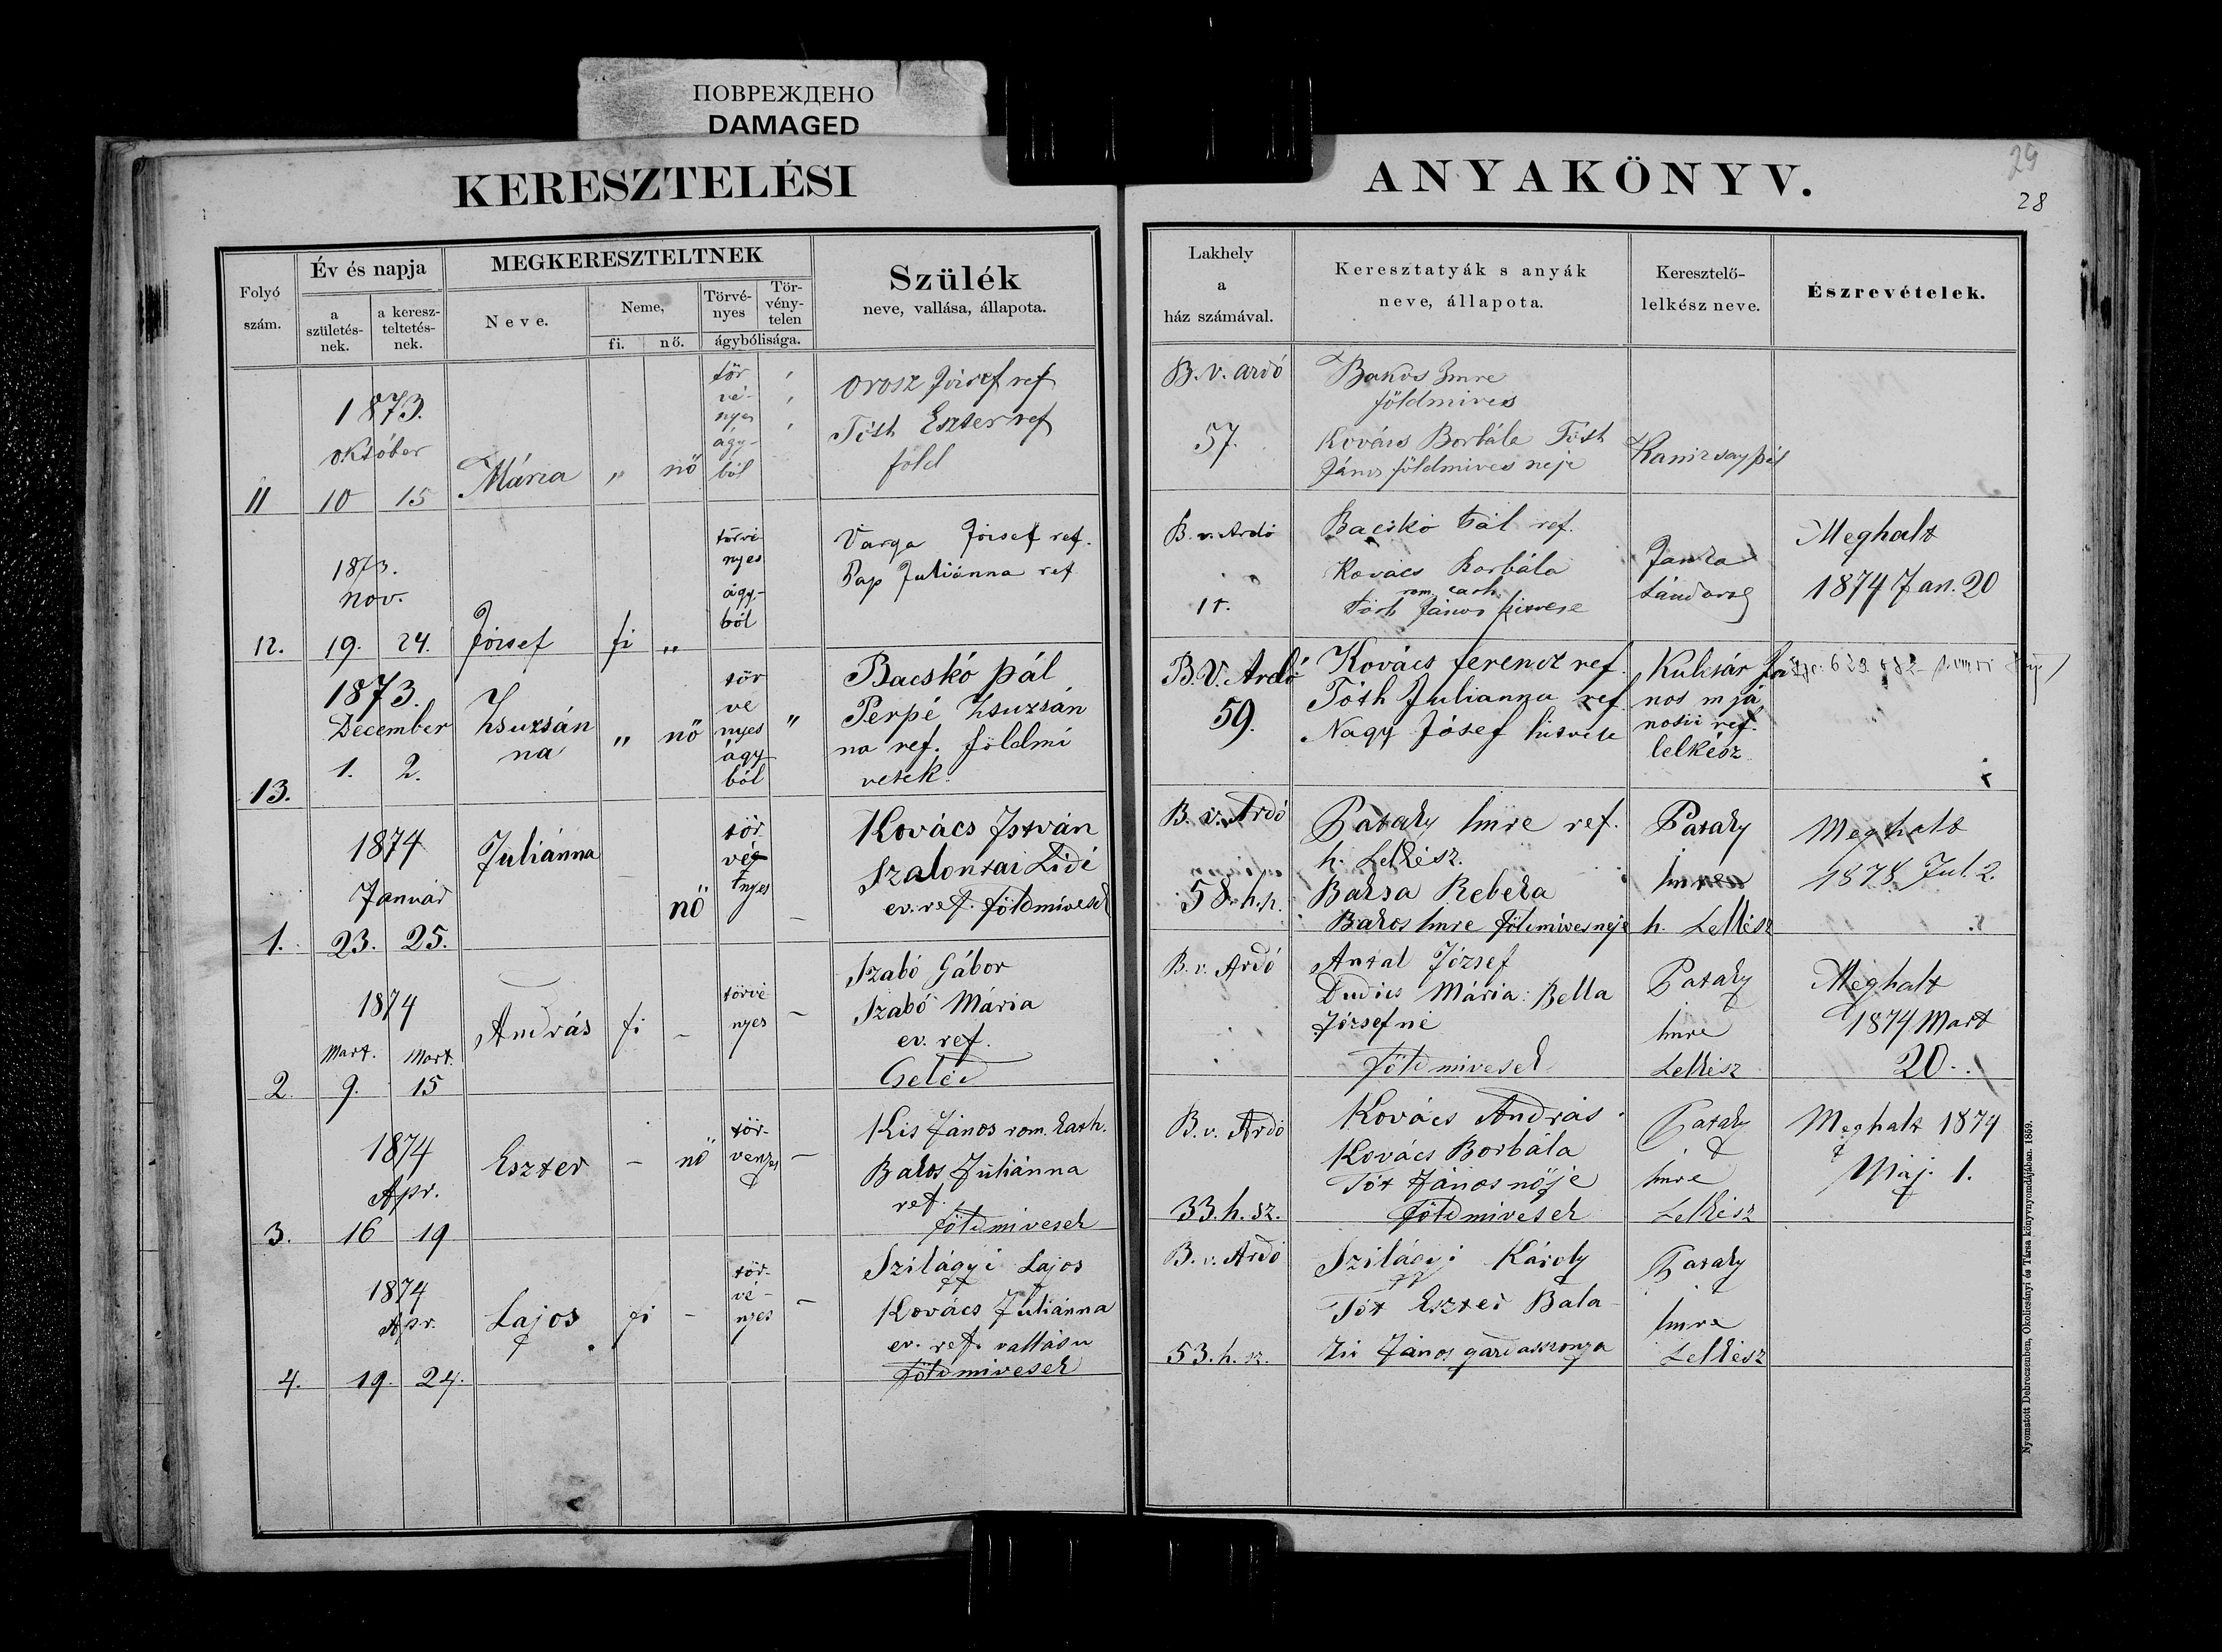 ПОВРЕЖДЕНО
DAMAGED
KERESZTELÉSI
ANYAKÖNYV.
29
28
Folyó szám.
Év és napja
a születés-nek.
a keresz-teltetés-nek.
MEGKERESZTELTNEK
Neve.
Neme,
fi.
nő.
Törvé-nyes
Tör-vény-telen
ágybólisága.
Szülék
neve, vallása, állapota.
Lakhely
a
ház számával.
Keresztatyák s anyák
neve, állapota.
Keresztelő-
lelkész neve.
Észrevételek.
11
1873.
október
10 15
Mária
" nő
tör
vé-
nyes
ágy-
ból
Orosz József ref
Tóth Eszter ref
föld
B. V. ardó
57.
Bakos Imre
földmives
Kovács Borbála Tóth
János földmives neje
Kanizsay pál
12.
1873.
nov.
19. 24.
József
fi "
törvé
nyes
ágy-
ból
Varga József ref.
Pap Juliánna ref
B. v. Ardó
Bacskó Pál ref.
Kovács Borbála
rom. cath.
Tóth János hitvese
Meghalt
1874 Jan. 20
13.
1873.
December
1. 2.
Zsuzsán
na
" nő
tör
vé
nyes
ágy
ból
"
Bacskó pál
Perpé Zsuzsán
na ref. földmi
vesek.
B. V. Ardó
59.
Kovács ferencz ref.
Tóth Julianna ref
Nagy Jósef hitvese
Kulcsár Já
nos m já
nosii ref.
lelkész
1.
1874
Január
23. 25.
Juliánna
nő
tör
vé
nyes
Kovács István
Szalontai Lidi
ev. ref. földmivesek
B. v. Ardó
58. h.
Pataky Imre ref.
h. Lelkész.
Baksa Rebeka
Bakos Imre földmives neje
Pataky
Imre
h. Lelkész
Meghalt
1878 Jul. 2.
2.
1874
Mart. Mart.
9. 15
András
fi -
törvé
nyes
-
Szabó Gábor
Szabó Mária
ev. ref.
Cseléd
B. v. Ardó
Antal József
Dudics Mária: Bella
Józsefné
Földmivesek
Pataky
Imre
Lelkész
Meghalt
1874 Mart
20.
3.
1874
Apr.
16 19
Eszter
- nő
tör-
venyes
-
Kis János rom. kath.
Bakos Juliánna
ref.
földmivesek
B. v. Ardó
33. h. sz.
Kovács András
Kovács Borbála
Tót János nője
földmivesek
Pataky
Imre
Lelkész
Meghalt 1874
Máj. 1.
4.
1874
Apr.
19. 24.
Lajos
fi -
tör-
vé-
nyes
-
Szilágyi Lajos
Kovács Juliánna
ev. ref. vallásu
földmivesek
B. v. Ardó
53. h. sz.
Szilágyi Károly
Tót Eszter Bala-
János gazdasszonya
Pataky
Imre
Lelkész
Nyomatott Debreczenben, Okolicsányi és Társa könyvnyomdájában. 1859.